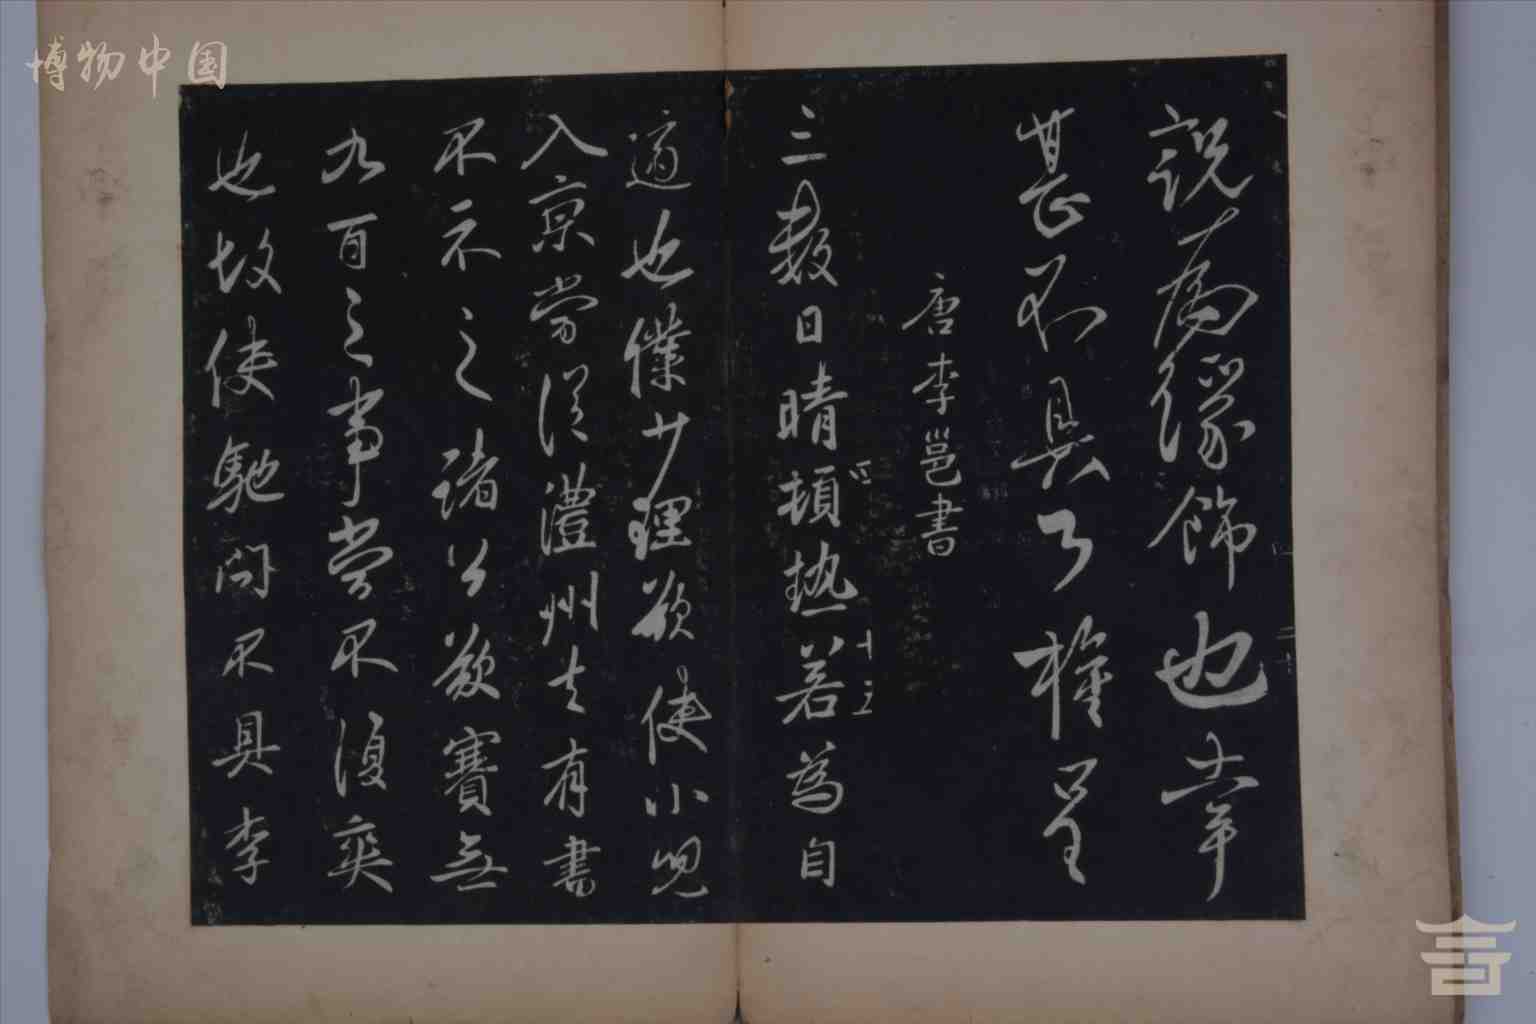 博物中国
說為緣飾也幸
甚不具了權呈
唐李邕書
三數日晴頓热若為自
適也僕少理欲使小兒
入京當從澧州去有書
不示之諸公欲賽無
九百之事當不復爽
也故使馳問不具李